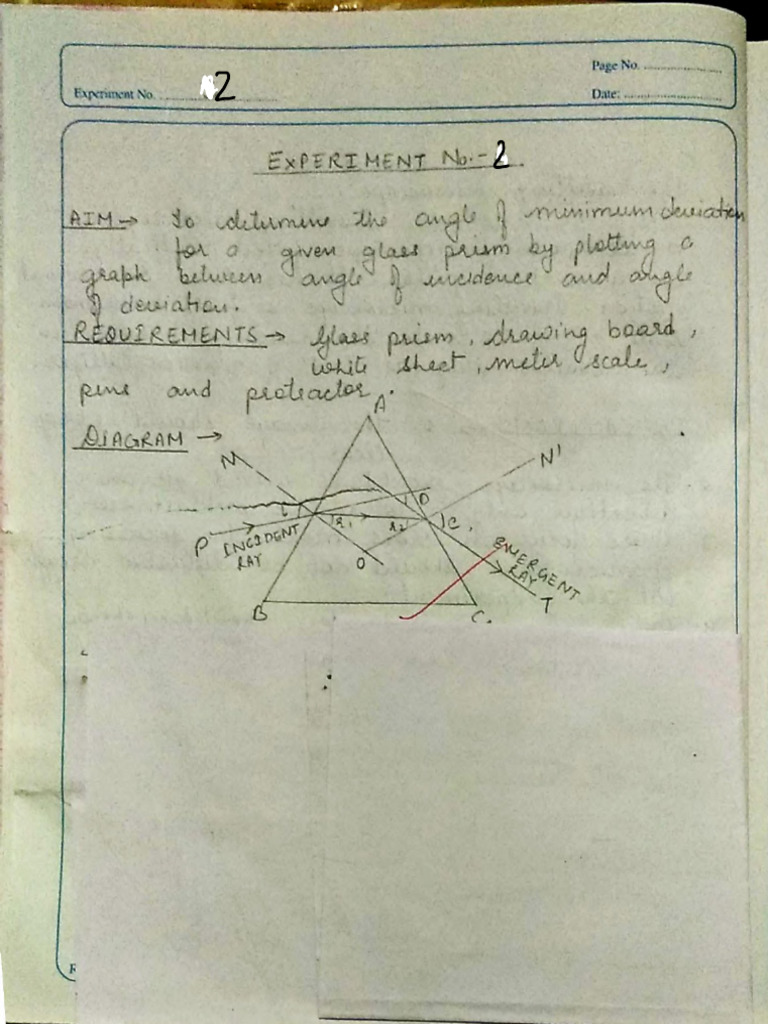 Page No. ....................
Experiment No. ........ 2 ........
Date: ....................
EXPERIMENT No.- 2
AIM → To determine the angle of minimum deviation
for a given glass prism by plotting a
graph between angle of incidence and angle
of deviation.
REQUIREMENTS → Glass prism, drawing board,
white sheet, meter scale,
pens and protractor.
DIAGRAM →
A
N
N'
D
i
r1
r2
e
P
INCIDENT
RAY
O
EMERGENT
RAY
T
B
C